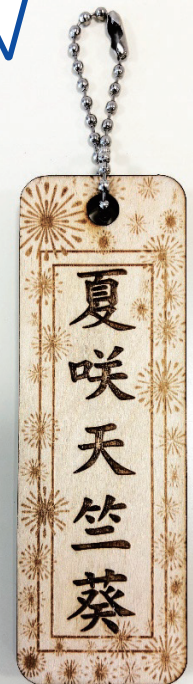 夏咲天竺葵